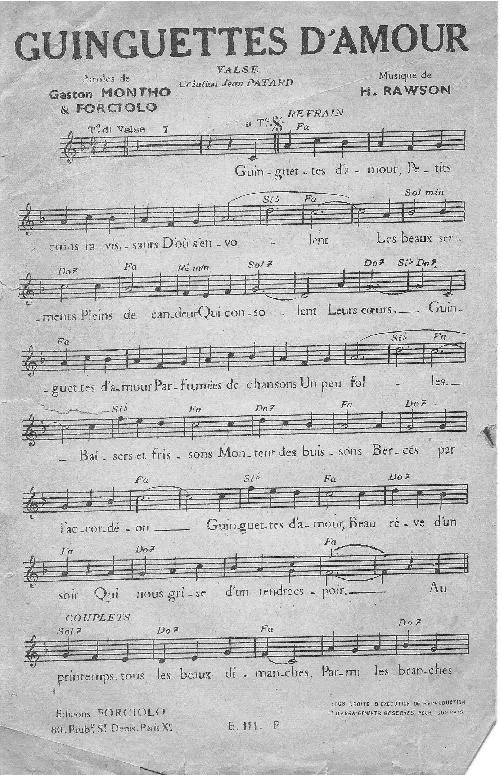 GUINGUETTES D'AMOUR
VALSE
Paroles de
Gaston MONTHO
& FORCIOLO
Création Jean PATARD
Musique de
H. RAWSON
Tº di Valse 7
REFRAIN
Fa
Guin-guet-tes d'a-mour, Pe-tits
Sib Fa Sol min
coins ra-vis-sants D'où s'en-vo - lent Les beaux ser-
Do7 Fa Ré min Sol7 Do7 Sib Do7
-ments Pleins de can-deur Qui con-so - lent Leurs cœurs. Guin-
Fa Sib Fa
-guet-tes d'a-mour Par-fumées de chansons Un peu fol - les
Sib Fa Do7 Fa Do7
Bai-sers et fris-sons Mon-tent des buis-sons Ber-cés par
Fa Sib Fa Do7
l'ac-cor-dé-on Guin-guet-tes d'a-mour, Beau rê-ve d'un
Fa Do7 Fa
soir Qui nous gri-se d'un tendre es-poir. Au
COUPLETS
Sol7 Do7 Fa Do7
printemps, tous les beaux di-manches, Par-mi les branches
Editions FORCIOLO
E. 111. F
TOUS DROITS D'EXECUTION DE REPRODUCTION
D'ARRANGEMENTS RÉSERVÉS POUR